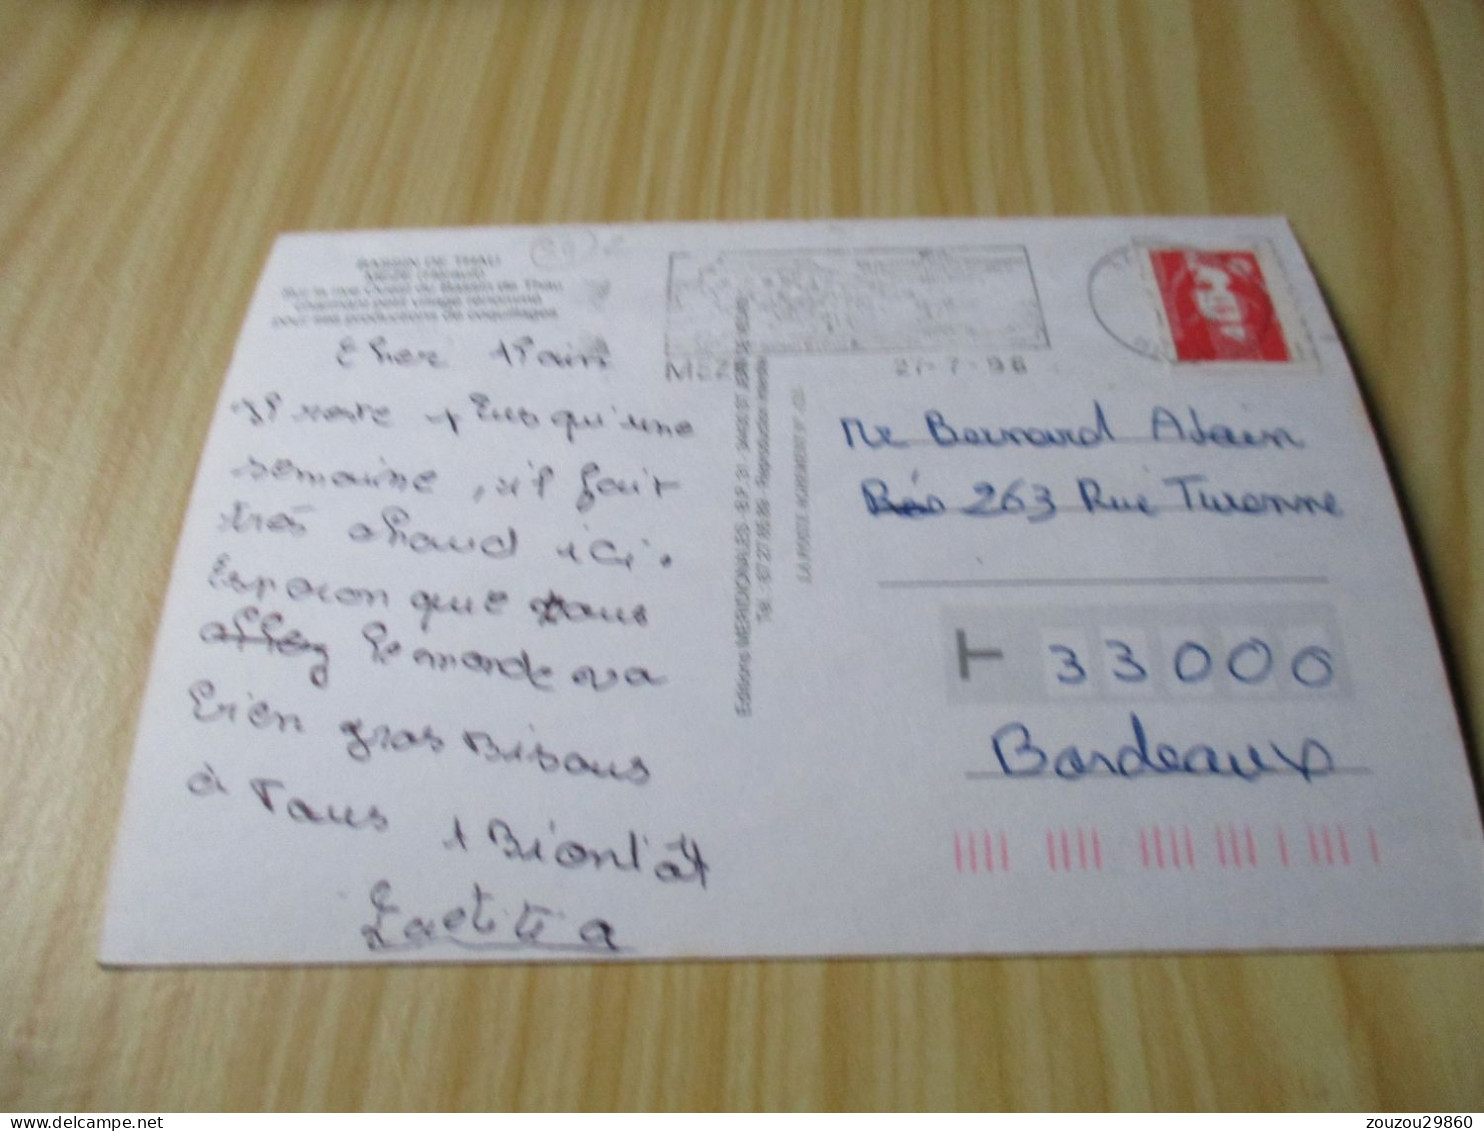 BASSIN DE THAU
MÈZE (Hérault)
Sur la rive Ouest du Bassin de Thau
charmant petit village renommé
pour ses productions de coquillages
Cher Alain
il reste plus qu'une
semaine, il fait
très chaud ici.
Esperon que tous
allez le monde va
bien gros Bisous
à Tous A Bientôt
Laetitia
Editions MERIDIONALES - B.P. 31
Tél. : 67 27 85 89 - Reproduction interdite
LA POSTE AGREMENT N°
MEZ
27-7-96
Mr Bernard Alain
Rés 263 Rue Turenne
T 33000
Bordeaux
zouzou29860